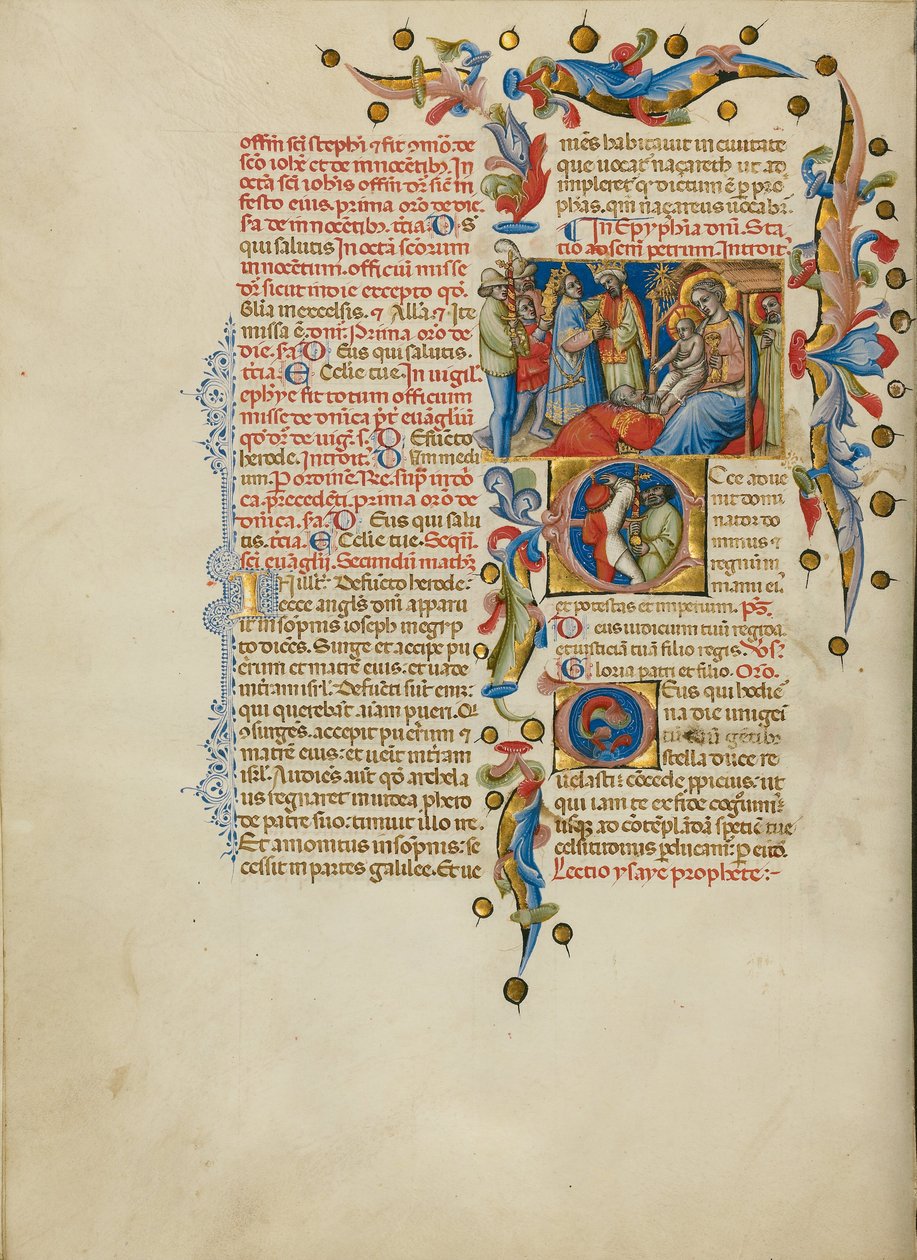 offm sci stephi ⁊ fit ꝯmo. de
sco ioh̄e et de innocentib; In
octa sci iohis offm dr̄ sic̄ in
festo eius. prima oro de die.
s̄a de innocentibus. t̄cia. DS
qui salutis In octa scōrum
innocentum. officiū misse
dr̄ sicut in die excepto qo.
Glīa in excelsis. ⁊ Allā. ⁊ Ite
missa ē. dn̄i. Prima oro de
die. s̄a. Deus qui salutis.
t̄cia. Ecclie tue. In uigil.
ephye fit totum officium
misse de dn̄ica pt̄ euāgliū
qo dr̄ de uigl. s. Defūcto
herode. Introit. Dum medi
um. P ordinē. Rē. sup̄ in dō
ca. precedēti. prima oro de
dōnica. s̄a. Deus qui salu
tis. t̄cia. Ecclie tue. Sequē.
sci euāglii. Secundū math;
In illō t̄. Defūcto herode:
ecce angls dn̄i apparu
it in sōpnis ioseph in egyp
to dicēs. Surge et accipe pu
erum et matrē eius. et uade
in t̄ram isrl. Defūcti sūt eni:
qui querebāt aīam pueri. Q
ꝯsurgēs. accepit puerum ⁊
matrē eius: et uēit in t̄ram
isrl. Audiēs aūt qo archela
us regnaret in iudea p̄ hero
de patre suo: timuit illo ire.
Et amonitus in sōpnis: se
cessit in partes galilee. Et ue
niēs habitauit in ciuitate
que uocat̄ naçareth ut ad
impleret̄ qd dictum ē p pro
phās. qm̄ naçareus uocabit̄.
In Epyphīa dn̄i. Sta
tio ad scm̄ petrum. Introit̄
Ecce adue
nit domi
nator do
minus ⁊
regnū in
manu ei,
et potestas et imperium. Ps̄.
Deus iudicium tuū regi da.
et iusticiā tuā filio regis. Vs̄?
Gloria patri et filio. Oro.
Deus qui hodie
na die unigeī
tū tuū gētibꝫ
stella duce re
uelasti: cōcede ppicius. ut
qui iam te ex fide cogūim;
usq; ad cōtēplādā speciē tue
celsitudinis pducam̄: P eūd.
Lectio ysaye prophete:-